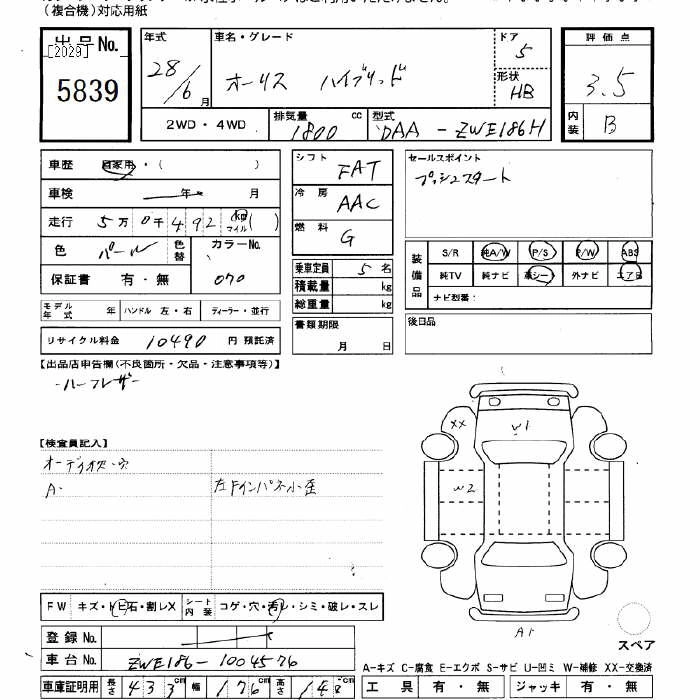 (複合機)対応用紙
出品No.
[2029]
5839
年式
28/6月
車名・グレード
オーリス ハイブリッド
ドア
5
形状
HB
2WD・4WD
排気量
1800 cc
型式
DAA-ZWE186H
評価点
3.5
内装
B
車歴 自家用・( )
車検 年 月
走行 5万0千492 km マイル( )
色 パール 色替 カラーNo.
070
保証書 有・無
モデル年式 年 ハンドル 左・右 ディーラー・並行
リサイクル料金 10490 円 預託済
シフト FAT
冷房 AAC
燃料 G
乗車定員 5名
積載量 kg
総重量 kg
書類期限
月 日
セールスポイント
プッシュスタート
装備品
S/R 純A/W P/S P/W ABS
純TV 純ナビ 革シート 外ナビ エアB
ナビ型番:
後日品
【出品店申告欄(不良箇所・欠品・注意事項等)】
-ハーフレザー
【検査員記入】
A・
左Fインパネ小歪
XX
W1
W2
A1
スペア
FW キズ・トビ石・割レX シート内装 コゲ・穴・汚レ・シミ・破レ・スレ
登録No.
車台No. ZWE186-1004576
車庫証明用 長さ 433cm 幅 176cm 高さ 148cm
A-キズ C-腐食 E-エクボ S-サビ U-凹ミ W-補修 XX-交換済
工具 有・無 ジャッキ 有・無